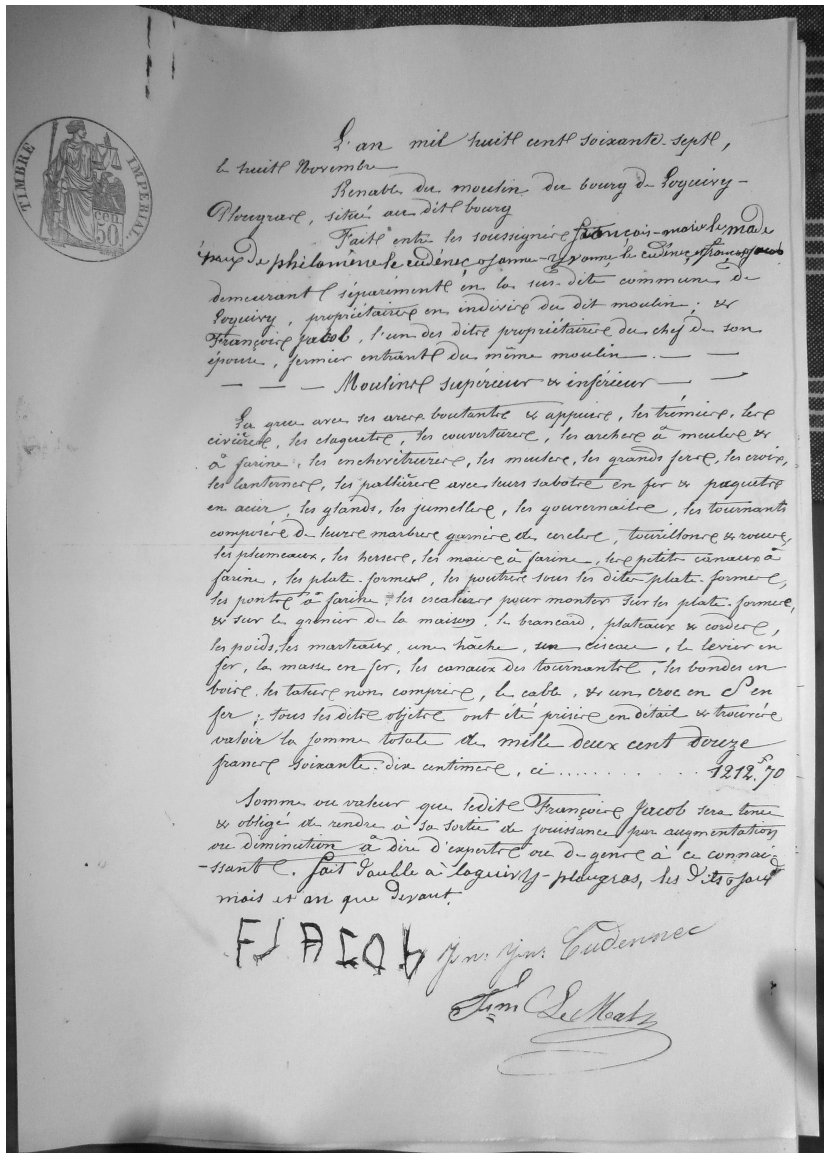 TIMBRE IMPERIAL.
50
CEN.
L'an mil huit cent soixante-sept,
le huit Novembre
Renable du moulin du bourg de Loguivy-
Plougras, situé au dit bourg
Fait entre les soussignés françois-marie le
époux de philomène le cudénec jeanne-yvonne le cudénec et françois jacob
demeurant séparément en la sus-dite commune de
Loguivy, propriétaires en indivise du dit moulin; &
François Jacob, l'un des dits propriétaires du chef de son
épouse, fermier entrant du même moulin. — —
— — — Moulins supérieur & inférieur — —
La grue avec ses arcs boutants & appuis, les trémies, les
civières, les claquets, les couvertures, les arches à meules &
à farine, les enchevêtrures, les meules, les grands fers, les croix,
les lanternes, les pallières avec leurs sabots en fer & paquets
en acier, les glands, les jumelles, les gouvernails, les tournants
composés de leurs marbres garnis de cercles, tourillons & roues,
les plumeaux, les herses, les maies à farine, les petits canaux à
farine, les plate-formes, les poutres sous les dites plate-formes,
les ponts à farine, les escaliers pour monter sur les plate-formes,
& sur le grenier de la maison, le brancard, plateaux & cordes,
les poids, les marteaux, une hâche, un ciseau, le levier en
fer, la masse en fer, les canaux des tournants, les bondes en
bois, les talus non compris, le cable, & un croc en S en
fer; tous les dits objets ont été prisés en détail & trouvés
valoir la somme totale de mille deux cent douze
francs soixante-dix centimes, ci .......... 1212.f70
Somme ou valeur que ledit François Jacob sera tenu
& obligé de rendre à sa sortie de jouissance par augmentation
ou diminution à dire d'experts ou de gens à ce connais
-sants. fait double à loguivy-plougras, les dits jour
mois et an que devant.
FJACOb Jne. Yne. Cudennec
Fs.m Le